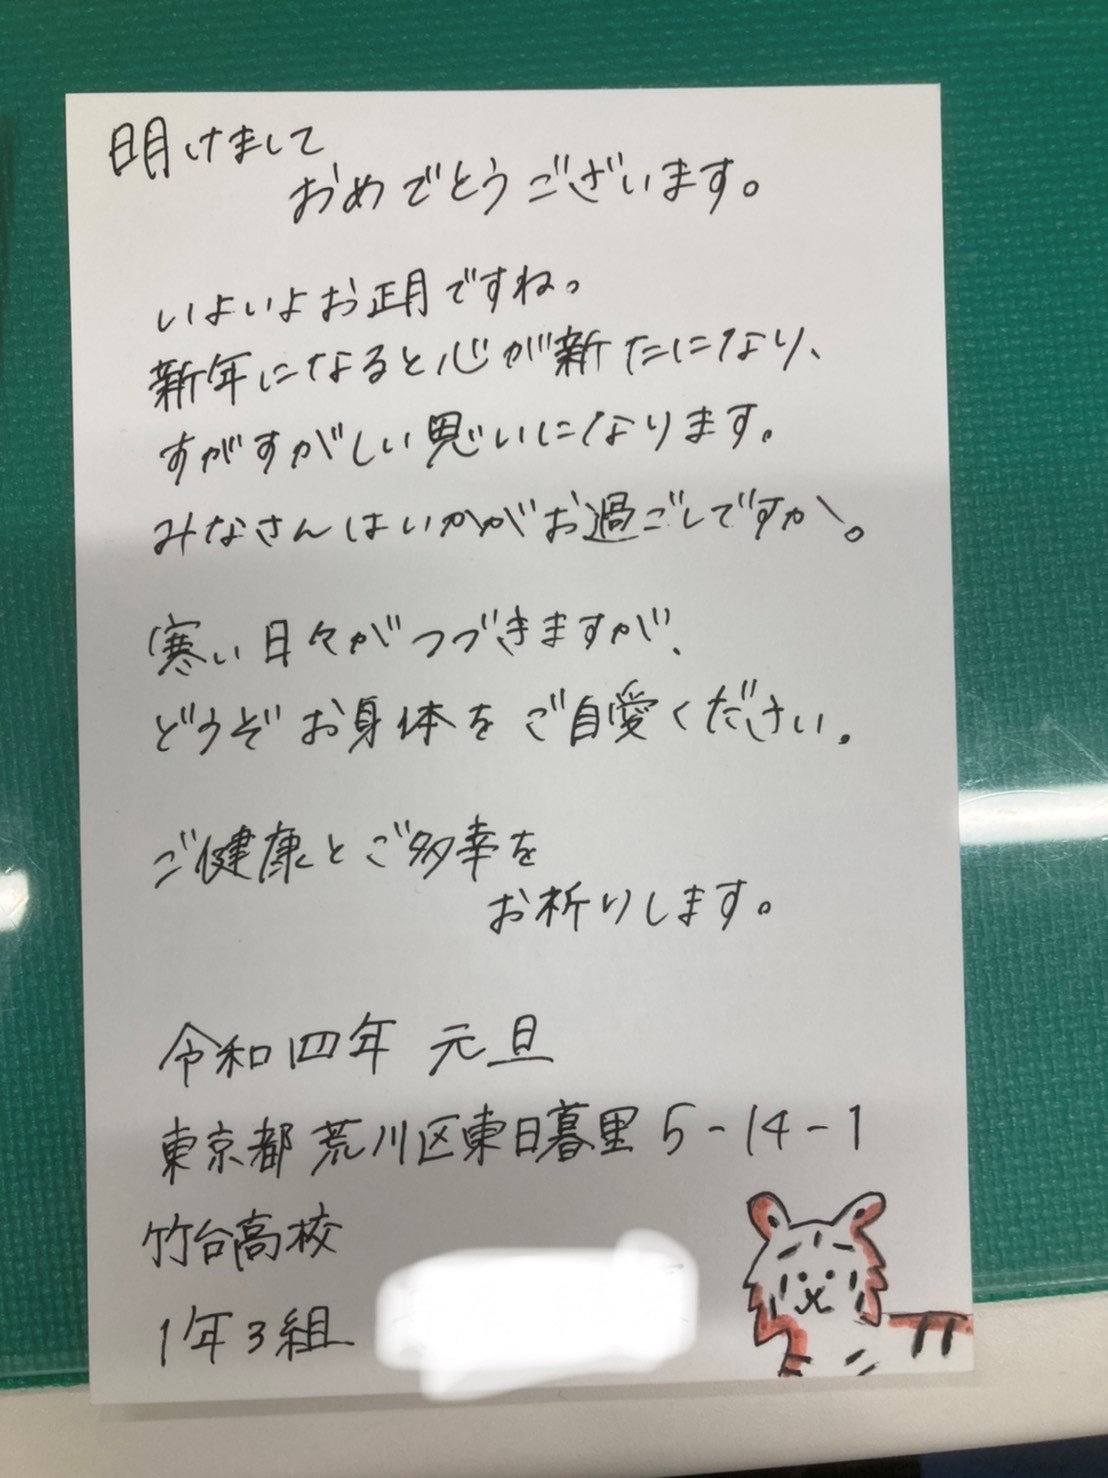 明けまして
おめでとうございます。
いよいよお正月ですね。
新年になると心が新たになり、
すがすがしい思いになります。
みなさんはいかがお過ごしですか。
寒い日々がつづきますが、
どうぞお身体をご自愛ください。
ご健康とご多幸を
お祈りします。
令和四年 元旦
東京都荒川区東日暮里5-14-1
竹台高校
1年3組